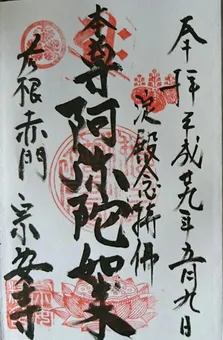 奉拝 平成廿九年五月九日
淀殿念持佛
本尊 阿弥陀如来
彦根赤門 宗安寺